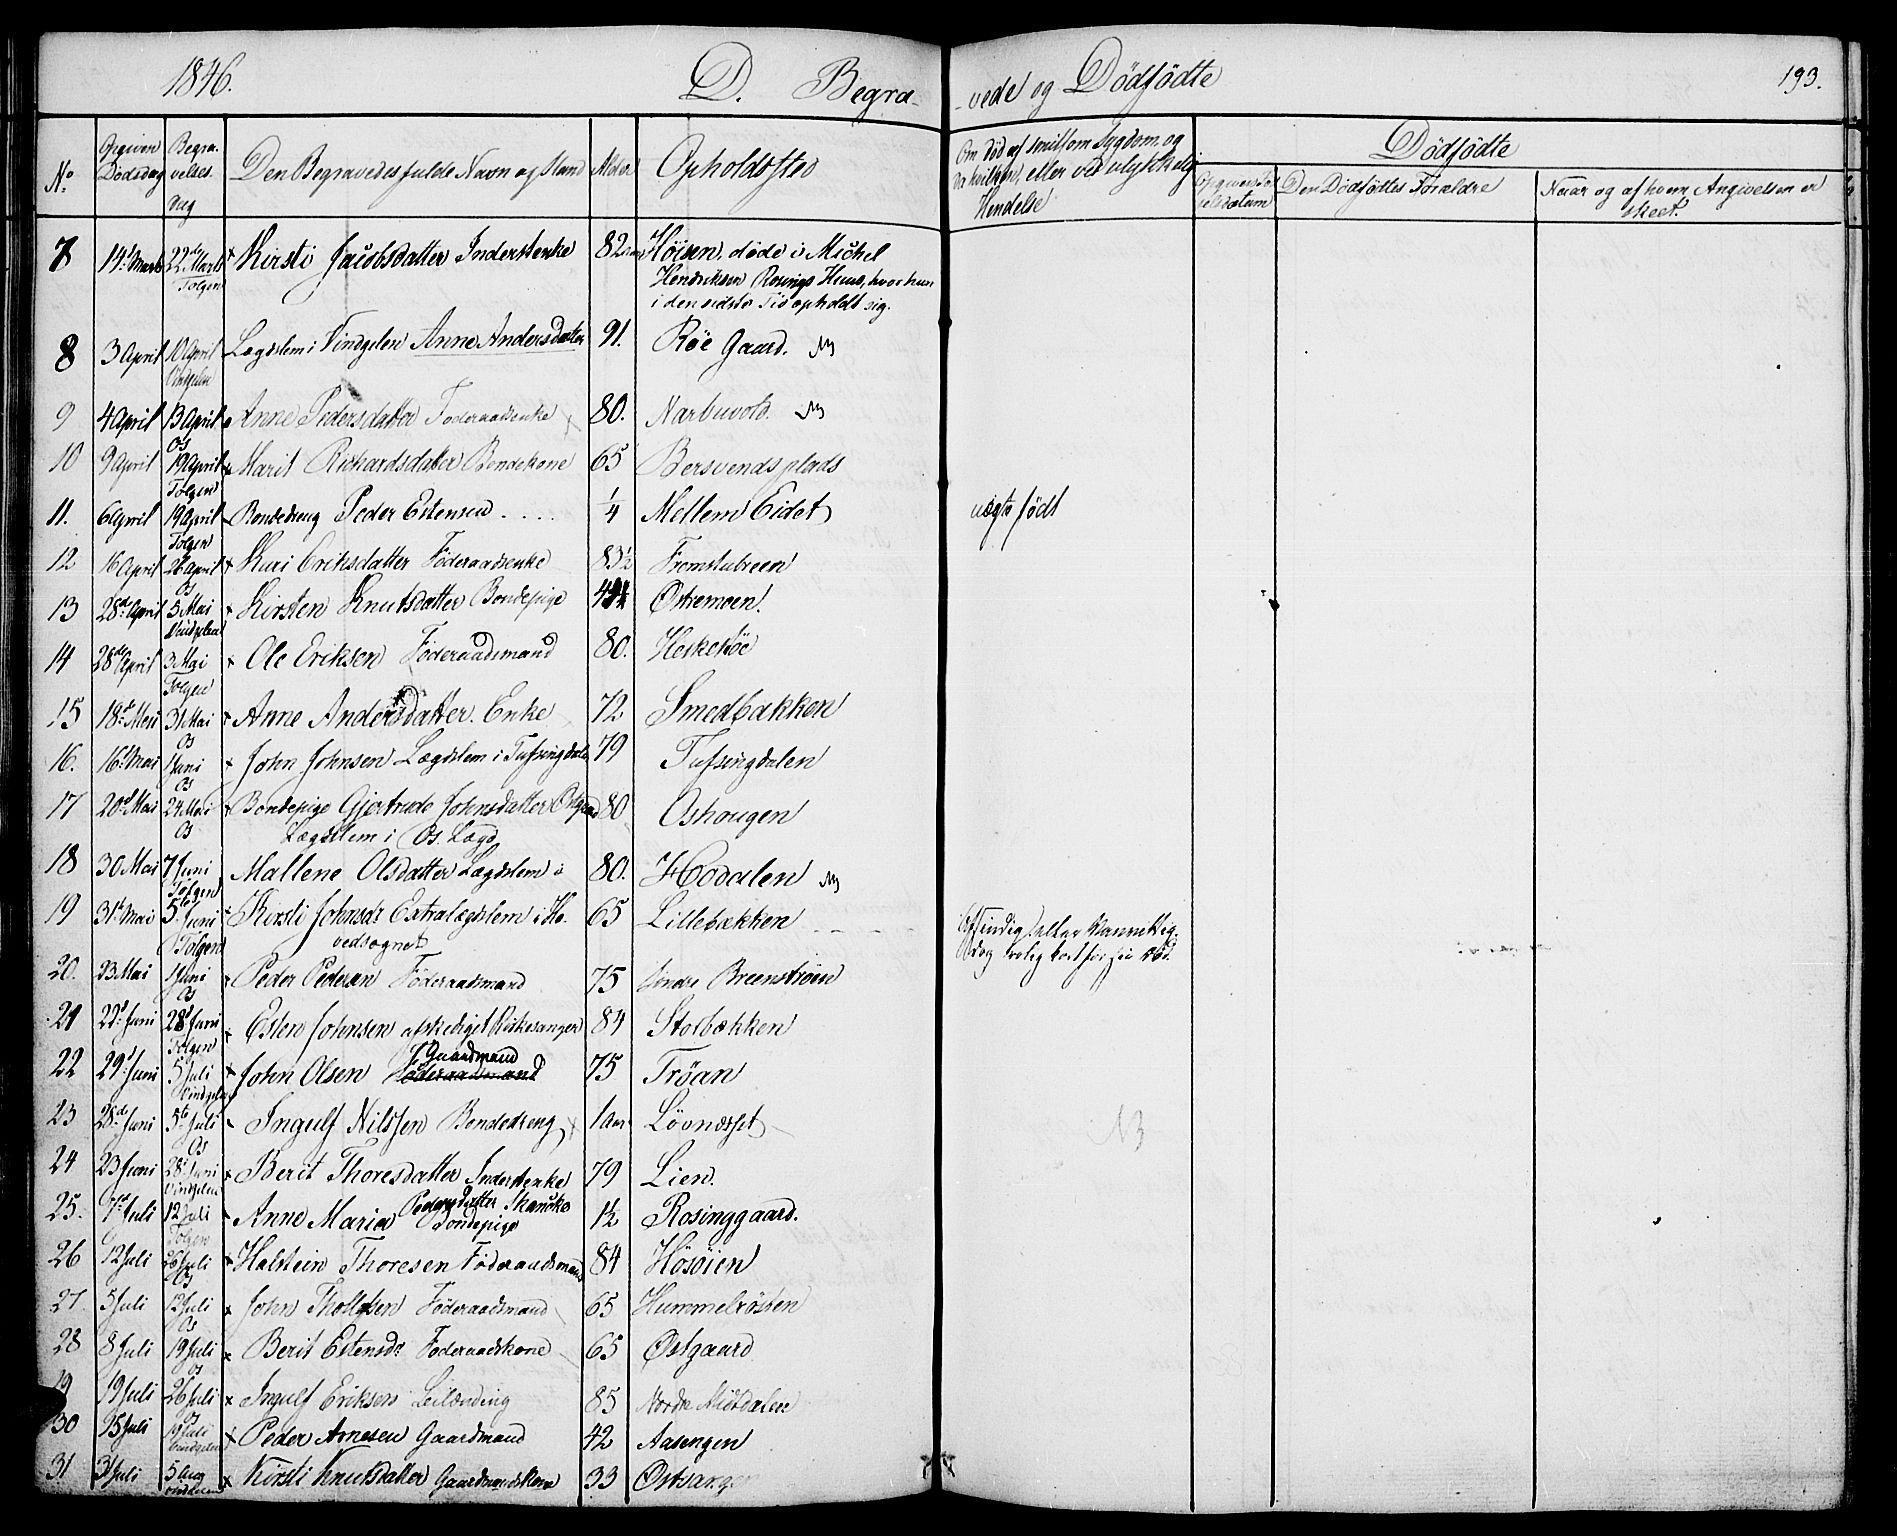 1846.
D. Begra-
-vede og Dødfødte
193.
No
Opgiven Dødsdag
Begra-velses-dag
Den Begravedes fulde Navn og Stand
Alder
Opholdssted
Om død af smitsom Sygdom og
da hvilken, eller ved ulykkelig
Hendelse
Dødfødte
Den Dødfødtes Forældre
Naar og af hvem Angivelsen er
skeet.
7 14 Marts 22de Marts Tolgen Kirsti Jacobsdatter Inderstenke 82 Høisen, døde i Michel
Hendriksen Rosings Huus, hvor hun
i den sidste Tid opholdt sig.
8 3 April 10 April Vindgelen Lægdslem i Vindgelen Anne Andersdatter 91. Røe Gaard.
9 4 April 13 April Os Anne Pedersdatter Føderaadsenke 80. Narbuvold.
10 9 April 19 April Tolgen Marit Richardsdatter Bondekone 65 Bersvendsplads
11. 6 April 19 April Tolgen Bondedreng Peder Estensen .... 1/4 Mellem Eidet uægte født
12 16 April 26 April Os Kari Eriksdatter Føderaadsenke 83½ Fromstubreen
13 28de April 5 Mai Vindgelen Kirsten Knutsdatter Bondepige Østremoen.
14 28de April 3 Mai Tolgen Ole Eriksen Føderaadsmand 80.
15 18de Mai 31 Mai Os Anne Andersdatter. Enke 72 Smedbakken
16. 16de Mai 1 Juni Os John Johnsen Lægdslem i Tufsingdalen 79 Tufsingdalen
17 20de Mai 24 Mai Os Bondepige Gjertrude Johnsdatter Østgaard 80 Oshougen
Lægdslem i Os Lægd
18 30 Mai 7 Juni Tolgen Mallene Olsdatter Lægdslem i 80. Hodalen
19 31 Mai 5te Juni Tolgen Kirsti Johnsdr Extralægdslem i Ho- 65 Lillebækken
vedsognet
Afsindig eller Vanvittig.
20. 23 Mai 1 Juni Os Peder Pedersen Føderaadsmand 75 Søndre Breenstrøen
21 22de Juni 28de Juni Tolgen Esten Johnsen afskediget Kirkesanger 84 Storbækken
22 29de Juni 5 Juli Vindgelen John Olsen Gaardmand Føderaadsmand 75 Trøan
23 28de Juni 5te Juli Os Ingulf Nilssen Bondedreng 1 aar Løvnesset
24 23 Juni 28de Juni Vindgelen Berit Thoresdatter Inderstenke 79 Lien.
25. 7de Juli 12 Juli Tolgen Anne Maria Pedersdatter Skancke Bondepige 1½ Rosinggaard.
26 12 Juli 26 Juli Os Halstein Thoresen Føderaadsmand 84 Høsøien
27 5 Juli 12 Juli Os John Thollefsen Føderaadmand 65 Hummelrøsten
28 8 Juli 19 Juli Os Berit Estensdr Føderaadskone 65 Østgaard
29 19 Juli 26 Juli Os Ingulf Eriksen Leilænding 85 Nordre Midtdalen
30 15 Juli 19 Juli Vindgelen Peder Arnesen Gaardmand 42 Aasengen
31 31 Juli 5 Aug Kirsti Knutsdatter Gaardmandskone 33